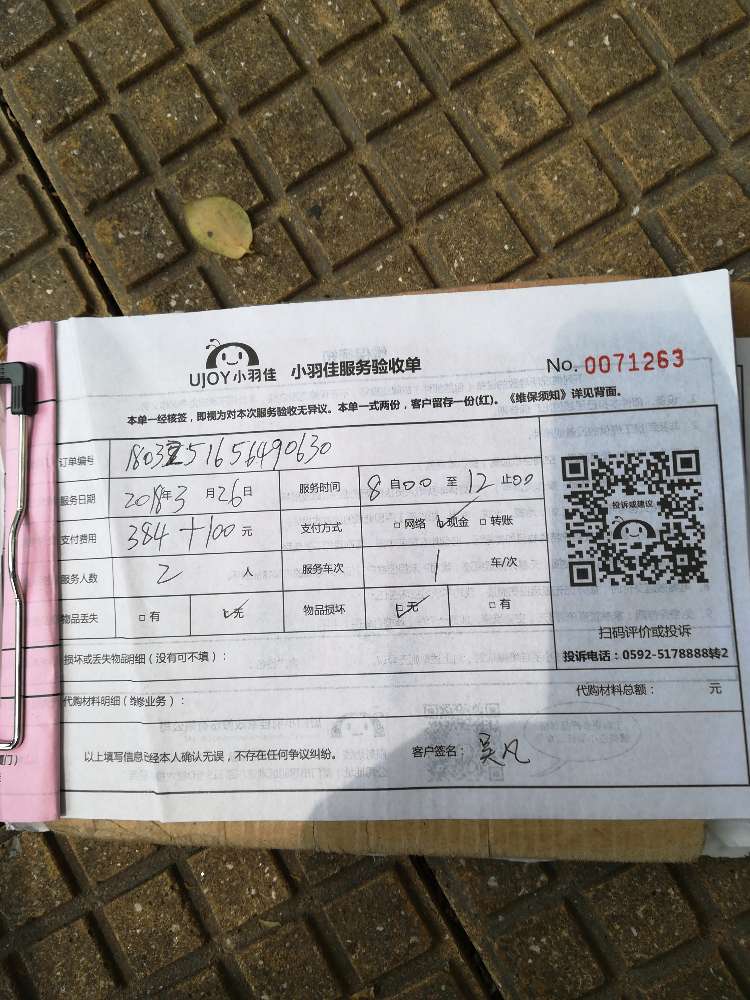 UJOY小羽佳 小羽佳服务验收单 No. 0071263
本单一经接签，即视为对本次服务验收无异议。本单一式两份，客户留存一份(红)。《维保须知》详见背面。
订单编号
服务日期 2018年3月26日 服务时间 8自00至12止00
支付费用 384+100元 支付方式 □网络 □现金 □转账
服务人数 2人 服务车次 1车/次
物品丢失 □有 □无 物品损坏 □无 □有
投诉或建议
扫码评价或投诉
投诉电话：0592-5178888转2
损坏或丢失物品明细（没有可不填）：
代购材料明细（维修业务）： 代购材料总额： 元
以上填写信息已经本人确认无误，不存在任何争议纠纷。 客户签名：吴凡